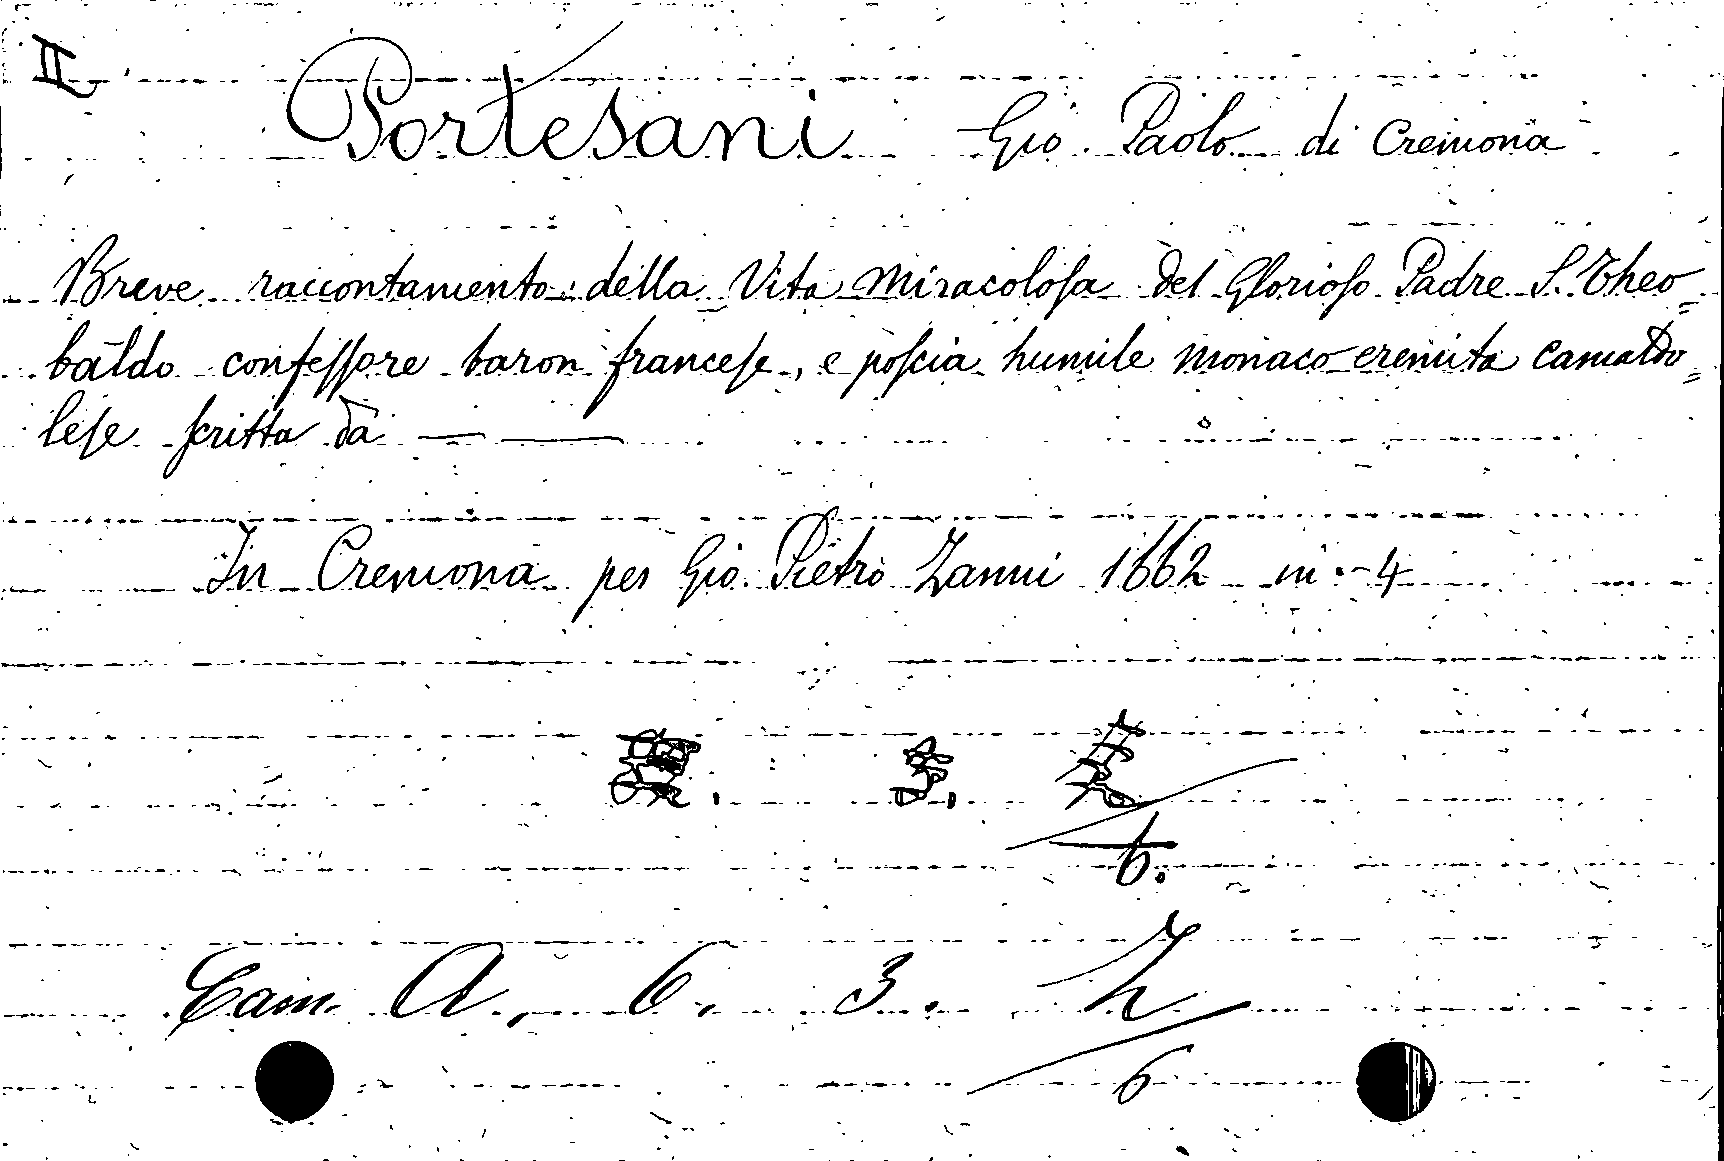 II
Portesani Gio Paolo di Cremona
Breve raccontamento della Vita Miracoloſa del Glorioſo Padre S. Theo=
baldo confeſſore baron franceſe, e poſcia humile monaco eremita camaldo=
leſe ſcritta da — —
In Cremona per Gio. Pietro Zanni 1662 in-4
6.
Cam. A, 6, 3. h
6